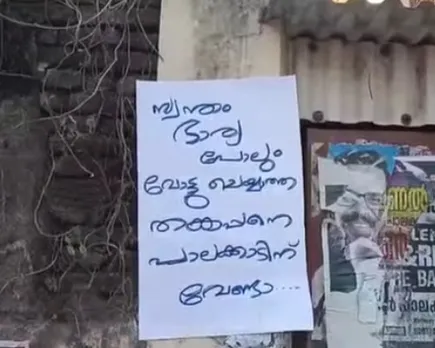 സ്വന്തം
ഭാര്യ
പോലും
വോട്ടു ചെയ്യാത്ത
തങ്കപ്പനെ
പാലക്കാടിന്
വേണ്ടാ....